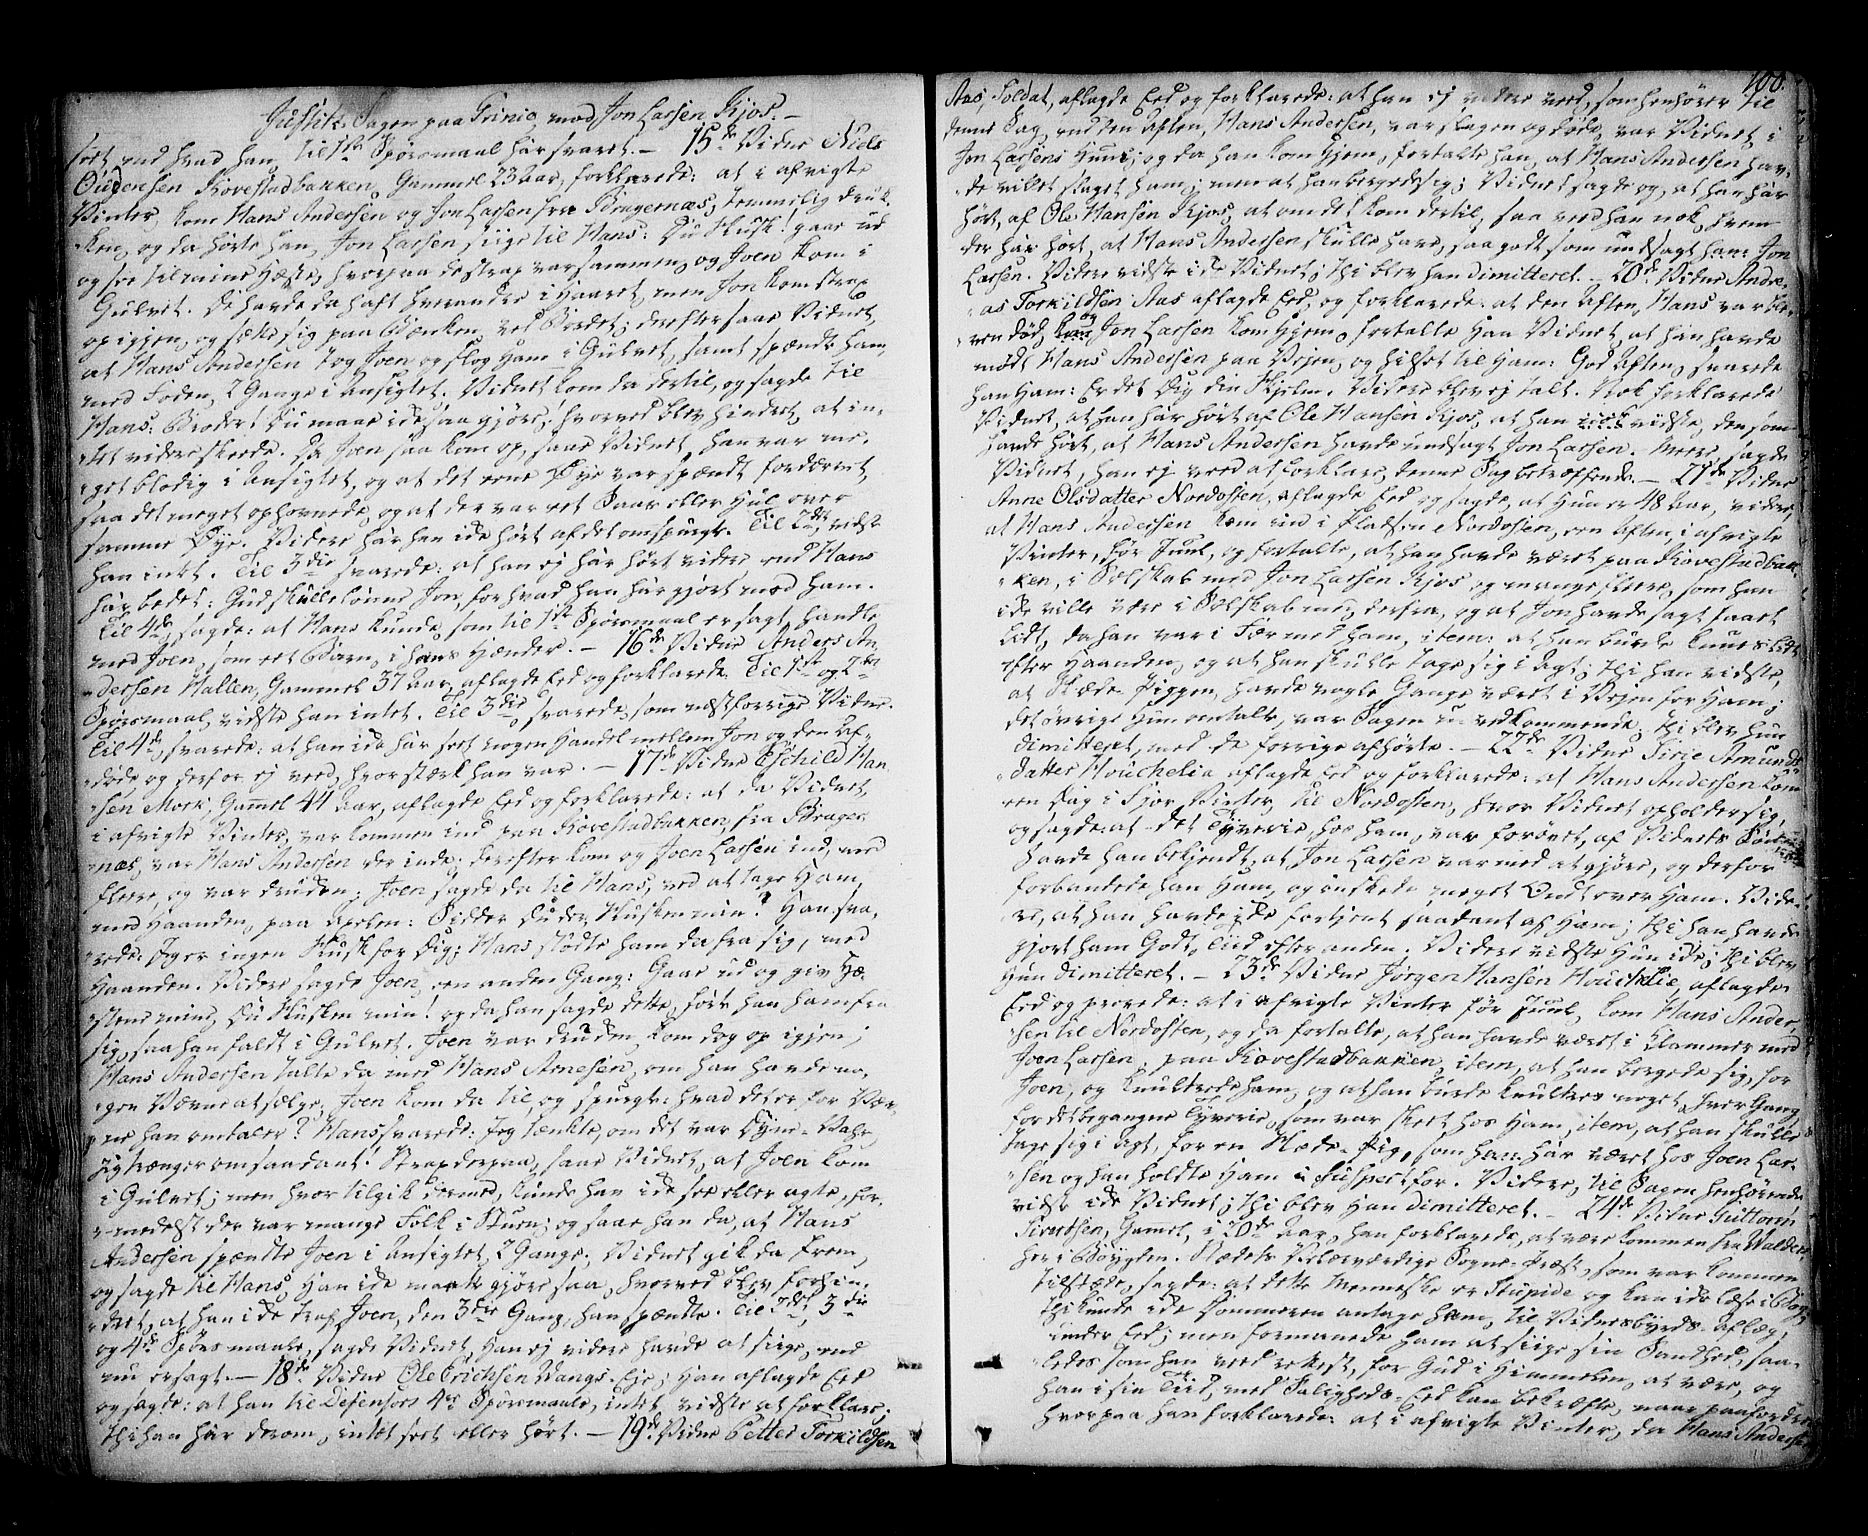 Justitz Sagen paa Grinie, mod Jon Larsen Kjos. –
seet end hvad han, til 1ste Spørsmaal har svaret. – 15de Vidne Niels
Oudensen Kovestadbakken, Gammel 23 aar, forklarede: at i afvigte
Vinter, kom Hans Andersen og Jon Larsen fra Bragernæs, temmelig druk-
ken, og da hørte han, Jon Larsen siige til Hans: Du Kusk! gaae ud
og see til mine Heste, hvorpaa de strax var sammen, og Joen kom i
Gulvet. De havde da haft hverandre i Haaret, men Jon kom strax
op igjen, og satte sig paa Bænken, ved Bordet; derefter saae Vidnet,
at Hans Andersen tog Joen, og slog ham i Gulvet, samt spændte ham,
med Foden, 2 Gange i Ansigtet. Vidnet kom da dertil, og sagde til
Hans: Broder! Du maae ike saa gjøre, hvorved blev hindret, at in-
tet videre skeede. Da Joen saa kom op, saae Vidnet, han var me-
get blodig i Ansigtet, og at det eene Øye var spændt fordærvet,
saa det meget ophovnede, og at der var eet Saar eller Hul over
samme Øye. Videre har han ike hørt af det omspurgte. Til 2det, vidste
han intet. Til 3die svarede: at han ej har hørt videre end Hans
har bedet: Gud skulle lønne Jon, for hvad han har gjort mod ham.
Til 4de, sagde: at Hans kunde, som til 1ste Spørsmaal er sagt, handle
med Joen, som eet Barn, i hans Hænder. – 16de Vidne Anders An-
dersen Hallen, Gammel 37 aar, aflagde Eed og forklarede. Til 1ste og 2det
Spørsmaal, vidste han intet. Til 3die, svarede, som næstforrige Vidne.
Til 4de, svarede: at han ike har seet nogen Handel mellem Jon og den Af-
døde, og derfor ej veed, hvor stærk han var. – 17de Vidne Eschild Han-
sen Moen, Gammel 44 aar, aflagde Eed og forklarede: at da Vidnet,
i afvigte Vinter, var kommen ind paa Kovestadbakken, fra Brager-
næs, var Hans Andersen der inde; derefter kom og Joen Larsen ind, med
fleere, og var drukken; Joen sagde da til Hans, ved at tage Ham,
med Haanden, paa Axelen: Sidder du der, Kusken min? Han sva-
rede: Jeg er ingen Kusk for Dig; Hans stødte ham da fra sig, med
Haanden. Videre sagde Joen, een anden Gang: Gaae ud og giv Hæ-
stene mine, du Kusken min! og da han sagde dette, førte han ham fra
sig, saa han faldt i Gulvet. Joen var drukken, kom dog op igjen;
Hans Andersen talte da med Hans Arnesen, om han havde no-
gen Værne at sælge; Joen kom da til, og spurgte: hvad det er for Vær-
ne han omtaler? Hans svarede: Jeg tænkte, om det var Dyne-Vahr,
jeg trænger om saadant. Strax derpaa, saae Vidnet, at Joen kom
i Gulvet; men hvor tilgik dermed, kunde han ike see eller agte, for-
medelst der var mange Folk i Stuen; og saae han da, at Hans
Andersen spændte Joen i Ansigtet, 2 Gange; Vidnet gik da frem,
og sagde til Hans, Han ike maatte gjøre saa, hvorved blev forhin-
dret, at han ike traf Joen, den 3die Gang, han spændte. Til 2det, 3die
og 4de Spørsmaale, sagde Vidnet, Han ej videre havde at siige, end
nu er sagt. – 18de Vidne Ole Erichsen Wangs-Eje; Han aflagde Eed
og sagde: at han til Defensors 4re Spørsmaale, intet vidste at forklare;
thi han har derom, intet seet eller hørt. – 19de Vidne Petter Torkildsen
100.
Aas, Soldat, aflagde Eed og forklarede: at han ej videre veed, som henhører til
denne Sag, end den Aften, Hans Andersen, var slagen og døde, var Vidnet i
Jon Larsens Huus; og da han kom hjem, fortalte han, at Hans Andersen hav-
de villet slaget ham; men at han bergede sig; Vidnet sagde og, at han har
hørt, af Ole Hansen Kjos, at om det kom dertil, saa veed han nok, hvem
der har hørt, at Hans Andersen skulle have, saa godt som undsagt ham Jon
Larsen. Videre vidste ike Vidnet; thi blev han dimitteret. – 20de Vidne Andre-
as Torkildsen Aas aflagde Eed, og forklarede: at den Aften, Hans var ble-
ven død, og Jon Larsen kom hjem, fortalte Han Vidnet, at han havde
mødt Hans Andersen paa Vejen, og hilset til ham: God Aften, svarede
han ham: Er det Dig din Skjelm. Videre blev ej talt. Nok forklarede
Vidnet, at han har hørt af Ole Hansen Kjos, at han vidste, den som
havde hørt, at Hans Andersen havde undsagt Jon Larsen. Meere, sagde
Vidnet, han ej veed at forklare, denne Sag betreffende. – 21de Vidne
Anne Olsdatter Nordossen, aflagde Eed og sagde, at Hun er 48 aar, videre,
at Hans Andersen kom ind i Pladsen Nordossen, een Aften, i afvigte
Vinter, før Juul, og fortalte, at han havde været paa Kovestadbak-
ken, i Selskab med Jon Larsen Kjos og mange fleere, som han
ike ville være i Selskab med, derfra, og at Jon havde sagt saart
lidt, da han var i Færd med ham, item: at han burde knues lidt
efter Haanden, og at han skulle tage sig i Agt; thi han vidste,
at Slæde-Piggen, havde nogle Gange været i Vejen for Ham;
det øvrige Hun omtalte, var Sagen u-vedkommende, thi blev hun
dimitteret, med de forrige afhørte. – 22de Vidne Sirie Amunds-
datter Houchelia aflagde Eed og forklarede: at Hans Andersen kom
een Dag i Fjor Vinter, til Nordossen, hvor Vidnet opholder sig,
og sagde: at det Tyverie, hos ham, var forøvet, af Vidnets Søn
havde han bekjendt, at Jon Larsen var med at gjøre, og derfor
forbandede han Ham, og ønskede meget Ondt over Ham. Vide-
re, at han havde ike fortjent saadant af Ham; thi han havde
gjort ham Godt, Tiid efter anden. Videre vidste Hun ike; thi blev
Hun dimitteret. – 23de Vidne Jørgen Hansen Houchelie, aflagde
Eed og provede: at i afvigte Vinter før Juul, kom Hans Ander-
sen til Nordossen, og da fortalte, at han havde været i Klammer med
Joen Larsen, paa Kovestadbakken, item, at han bergede sig, for
Joen, og knultrede ham, og at han burde knultres noget, hver Gang
for det begangne Tyverie, som var skeet hos Ham, item, at han skulle
tage sig i Agt, for en Slæde-Pig, som han har været hos Joen Lar-
sen og han holdte Ham i suspect for. Videre, til Sagen henhørende
vidste ike Vidnet; thi blev Han dimitteret. – 24de Vidne Guttorm
Sivertsen, Gamel, i 20de Aar, han forklarede, at være kommen fra Walders,
her i Bøygden. Stedets Velærværdige Sogne-Præst, som var kommen
tilstæde, sagde: at dette Menneske er Stupide og kan ike læse i Bog,
thi kunde ike Dommeren antage ham, til Vidnesbyrds-aflæg,
under Eed; men formanede ham at siige sin Sandhed, saa-
ledes som han veed rettest, for Gud i Himmelen, at være, og
han i sin Tiid, med Saligheds-Eed kan bekræfte, naar paafordres,
hvorpaa han forklarede: at i afvigte Vinter, da Hans Andersen